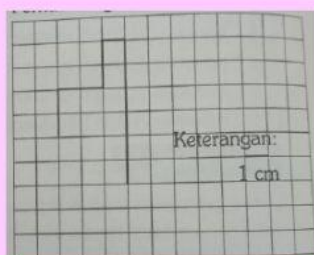 Keterangan:
1 cm